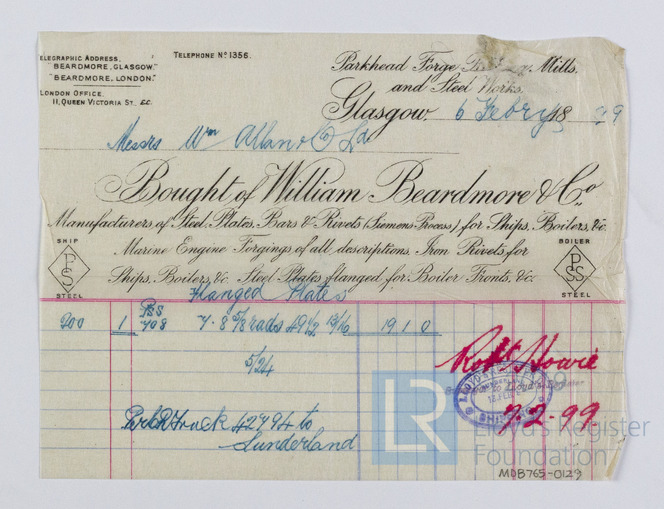 ELEGRAPHIC ADDRESS,
"BEARDMORE, GLASGOW."
"BEARDMORE, LONDON."
LONDON OFFICE.
11, QUEEN VICTORIA ST. E.C.
TELEPHONE Nº 1356.
Parkhead Forge Mills,
and Steel Works.
Glasgow, 6 Febry 1899
Messrs Wm Allan & Co Ld
Bought of William Beardmore & Co
Manufacturers of Steel Plates, Bars & Rivets (Siemens Process) for Ships, Boilers, &c.
Marine Engine Forgings of all descriptions. Iron Rivets for
Ships, Boilers, &c. Steel Plates flanged for Boiler Fronts, &c.
SHIP
PS
STEEL
BOILER
PSS
STEEL
Flanged Plates
200 1 PSS 708 7. 8 5/8 rads 49 1/2 13/16 19 1 0
5/24
Robt Howie
7.2.99
Truck 42794 to
Sunderland
LR
Lloyd's Register
Foundation
MDB765-0129